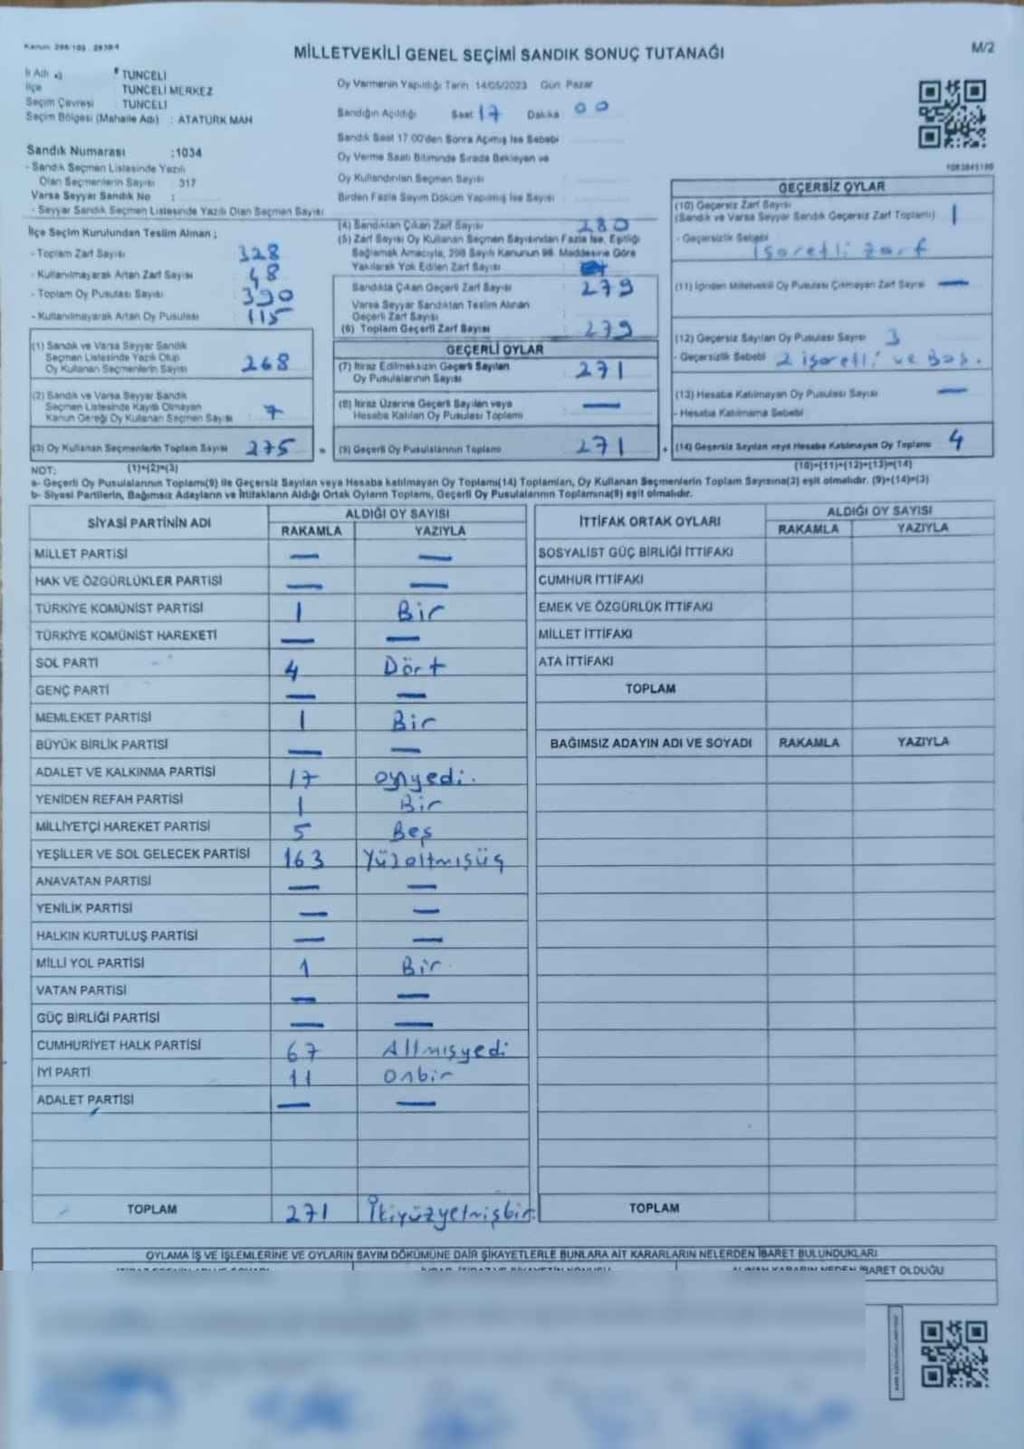 Kanun: 298/105 - 2839/4
MİLLETVEKİLİ GENEL SEÇİMİ SANDIK SONUÇ TUTANAĞI
M/2
İl Adı : TUNCELİ
İlçe TUNCELİ MERKEZ
Seçim Çevresi TUNCELİ
Seçim Bölgesi (Mahalle Adı) : ATATÜRK MAH
Sandık Numarası :1034
- Sandık Seçmen Listesinde Yazılı
Olan Seçmenlerin Sayısı : 317
Varsa Seyyar Sandık No :
- Seyyar Sandık Seçmen Listesinde Yazılı Olan Seçmen Sayısı
Oy Vermenin Yapıldığı Tarih 14/05/2023 Gün Pazar
Sandığın Açıldığı Saat 17 Dakika 00
Sandık Saat 17.00'den Sonra Açılmış İse Sebebi
Oy Verme Saati Bitiminde Sırada Bekleyen ve
Oy Kullandırılan Seçmen Sayısı
Birden Fazla Sayım Döküm Yapılmış İse Sayısı
İlçe Seçim Kurulundan Teslim Alınan ;
- Toplam Zarf Sayısı 328
- Kullanılmayarak Artan Zarf Sayısı 48
- Toplam Oy Pusulası Sayısı 390
- Kullanılmayarak Artan Oy Pusulası 115
(1) Sandık ve Varsa Seyyar Sandık
Seçmen Listesinde Yazılı Olup
Oy Kullanan Seçmenlerin Sayısı 268
(2) Sandık ve Varsa Seyyar Sandık
Seçmen Listesinde Kayıtlı Olmayan
Kanun Gereği Oy Kullanan Seçmen Sayısı 7
(3) Oy Kullanan Seçmenlerin Toplam Sayısı 275
(4) Sandıktan Çıkan Zarf Sayısı 280
(5) Zarf Sayısı Oy Kullanan Seçmen Sayısından Fazla İse, Eşitliği
Sağlamak Amacıyla, 298 Sayılı Kanunun 98. Maddesine Göre
Yakılarak Yok Edilen Zarf Sayısı
Sandıkta Çıkan Geçerli Zarf Sayısı 279
Varsa Seyyar Sandıktan Teslim Alınan
Geçerli Zarf Sayısı
(6) Toplam Geçerli Zarf Sayısı 279
GEÇERLİ OYLAR
(7) İtiraz Edilmeksizin Geçerli Sayılan
Oy Pusulalarının Sayısı 271
(8) İtiraz Üzerine Geçerli Sayılan veya
Hesaba Katılan Oy Pusulası Toplamı —
= (9) Geçerli Oy Pusulalarının Toplamı 271
GEÇERSİZ OYLAR
(10) Geçersiz Zarf Sayısı
(Sandık ve Varsa Seyyar Sandık Geçersiz Zarf Toplamı) 1
- Geçersizlik Sebebi
İşaretli zarf
(11) İçinden Milletvekili Oy Pusulası Çıkmayan Zarf Sayısı —
(12) Geçersiz Sayılan Oy Pusulası Sayısı 3
- Geçersizlik Sebebi 2 işaretli ve Boş.
(13) Hesaba Katılmayan Oy Pusulası Sayısı —
- Hesaba Katılmama Sebebi
+ (14) Geçersiz Sayılan veya Hesaba Katılmayan Oy Toplamı 4
NOT: (1)+(2)=(3)
(10)+(11)+(12)+(13)=(14)
a- Geçerli Oy Pusulalarının Toplamı(9) ile Geçersiz Sayılan veya Hesaba katılmayan Oy Toplamı(14) Toplamları, Oy Kullanan Seçmenlerin Toplam Sayısına(3) eşit olmalıdır. (9)+(14)=(3)
b- Siyasi Partilerin, Bağımsız Adayların ve İttifakların Aldığı Ortak Oyların Toplamı, Geçerli Oy Pusulalarının Toplamına(9) eşit olmalıdır.
SİYASİ PARTİNİN ADI ALDIĞI OY SAYISI
RAKAMLA YAZIYLA
MİLLET PARTİSİ — —
HAK VE ÖZGÜRLÜKLER PARTİSİ — —
TÜRKİYE KOMÜNİST PARTİSİ 1 Bir
TÜRKİYE KOMÜNİST HAREKETİ — —
SOL PARTİ 4 Dört
GENÇ PARTİ — —
MEMLEKET PARTİSİ 1 Bir
BÜYÜK BİRLİK PARTİSİ — —
ADALET VE KALKINMA PARTİSİ 17 onyedi.
YENİDEN REFAH PARTİSİ 1 Bir
MİLLİYETÇİ HAREKET PARTİSİ 5 Beş
YEŞİLLER VE SOL GELECEK PARTİSİ 163 Yüzaltmışüç
ANAVATAN PARTİSİ — —
YENİLİK PARTİSİ — —
HALKIN KURTULUŞ PARTİSİ — —
MİLLİ YOL PARTİSİ 1 Bir.
VATAN PARTİSİ — —
GÜÇ BİRLİĞİ PARTİSİ — —
CUMHURİYET HALK PARTİSİ 67 Altmışyedi
İYİ PARTİ 11 Onbir
ADALET PARTİSİ — —
TOPLAM 271 İkiyüzyetmişbir.
İTTİFAK ORTAK OYLARI ALDIĞI OY SAYISI
RAKAMLA YAZIYLA
SOSYALİST GÜÇ BİRLİĞİ İTTİFAKI
CUMHUR İTTİFAKI
EMEK VE ÖZGÜRLÜK İTTİFAKI
MİLLET İTTİFAKI
ATA İTTİFAKI
TOPLAM
BAĞIMSIZ ADAYIN ADI VE SOYADI RAKAMLA YAZIYLA
TOPLAM
OYLAMA İŞ VE İŞLEMLERİNE VE OYLARIN SAYIM DÖKÜMÜNE DAİR ŞİKAYETLERLE BUNLARA AİT KARARLARIN NELERDEN İBARET BULUNDUKLARI
ALINAN KARARIN NEDEN İBARET OLDUĞU